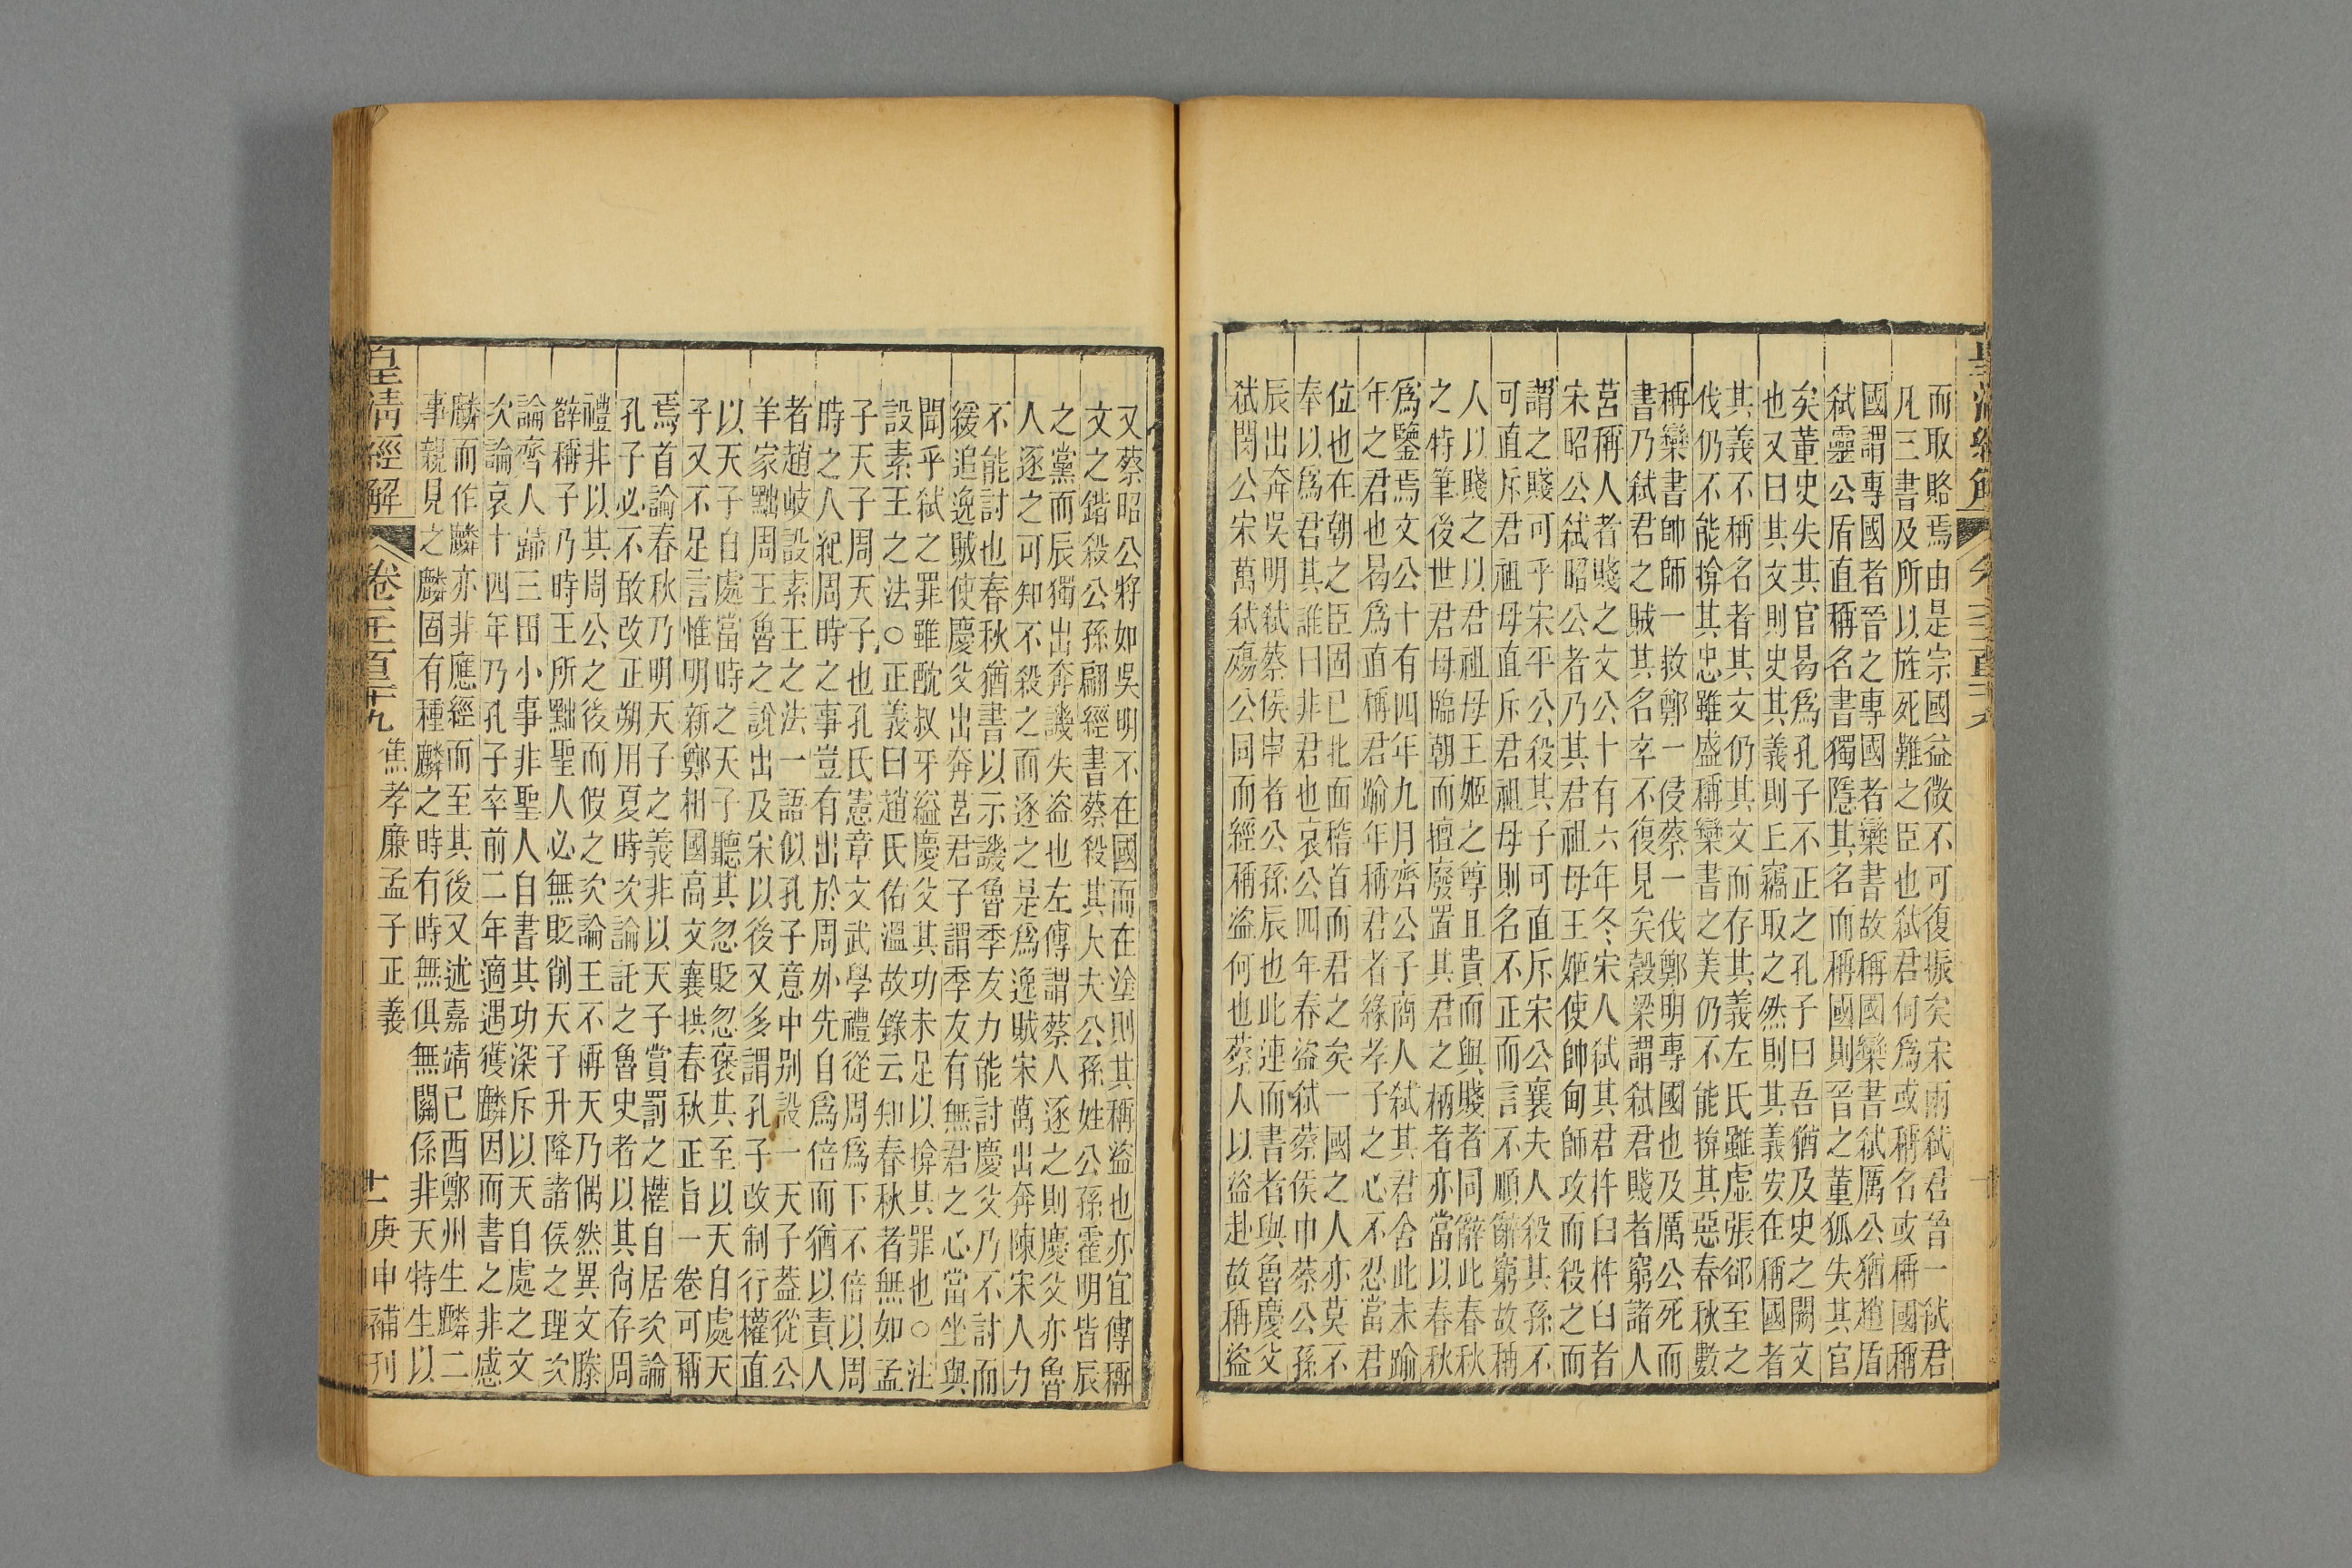 而取賂焉由是宗國益微不可復振矣宋兩弑君晉一弑君
凡三書及所以旌死難之臣也弑君何爲或稱名或稱國稱
國謂專國者晉之專國者欒書故稱國欒書弑厲公猶趙盾
弑靈公盾直稱名書獨隱其名而稱國則晉之董狐失其官
矣董史失其官曷爲孔子不正之孔子曰吾猶及史之闕文
也又曰其文則史其義則丘竊取之然則其義安在稱國者
其義不稱名者其文仍其文而存其義左氏雖虛張郤至之
伐仍不能揜其忠雖盛稱欒書之美仍不能揜其惡春秋數
稱欒書帥師一救鄭一侵蔡一伐鄭明專國也及厲公死而
書乃弑君之賊其名卒不復見矣穀梁謂弑君賤者窮諸人
莒稱人者賤之文公十有六年冬宋人弑其君杵臼杵臼者
宋昭公弑昭公者乃其君祖母王姬使帥甸師攻而殺之而
謂之賤可乎宋平公殺其子可直斥宋公襄夫人殺其孫不
可直斥君祖母直斥君祖母則名不正而言不順辭窮故稱
人以賤之以君祖母王姬之尊且貴而與賤者同辭此春秋
之特筆後世君母臨朝而擅廢置其君之柄者亦當以春秋
爲鑒焉文公十有四年九月齊公子商人弑其君舍此未踰
年之君也曷爲直稱君踰年稱君者緣孝子之心不忍當君
位也在朝之臣固已北面稽首而君之矣一國之人亦莫不
奉以爲君其誰曰非君也哀公四年春盜弑蔡侯申蔡公孫
辰出奔吳明弑蔡侯申者公孫辰也此連而書者與魯慶父
弑閔公宋萬弑殤公同而經稱盜何也蔡人以盜赴故稱盜
又蔡昭公將如吳明不在國而在塗則其稱盜也亦宜傳稱
文之鍇殺公孫翩經書蔡殺其大夫公孫姓公孫霍明皆辰
之黨而辰獨出奔譏失盜也左傳謂蔡人逐之則慶父亦魯
人逐之可知不殺之而逐之是爲逸賊宋萬出奔陳宋人力
不能討也春秋猶書以示譏魯季友力能討慶父乃不討而
緩追逸賊使慶父出奔莒君子謂季友有無君之心當坐與
聞乎弑之罪雖酖叔牙縊慶父其功未足以揜其罪也○注
設素王之法○正義曰趙氏佑溫故錄云知春秋者無如孟
子天子周天子也孔氏憲章文武學禮從周爲下不倍以周
時之人紀周時之事豈有出於周外先自爲倍而猶以責人
者趙岐設素王之法一語似孔子意中別設一天子蓋從公
羊家黜周王魯之說出及宋以後又多謂孔子改制行權直
以天子自處當時之天子聽其忽貶忽褒其至以天自處天
子又不足言惟明新鄭相國高文襄拱春秋正旨一卷可稱
焉首論春秋乃明天子之義非以天子賞罰之權自居次論
孔子必不敢改正朔用夏時次論託之魯史者以其尚存周
禮非以其周公之後而假之次論王不稱天乃偶然異文滕
薛稱子乃時王所黜聖人必無貶削天子升降諸侯之理次
論齊人歸三田小事非聖人自書其功深斥以天自處之文
次論哀十四年乃孔子卒前二年適遇獲麟因而書之非感
麟而作麟亦非應經而至其後又述嘉靖己酉鄭州生麟二
事親見之麟固有種麟之時有時無俱無關係非天特生以
皇清經解
卷一千一百二十九
焦孝廉孟子正義
十一
庚申補刊